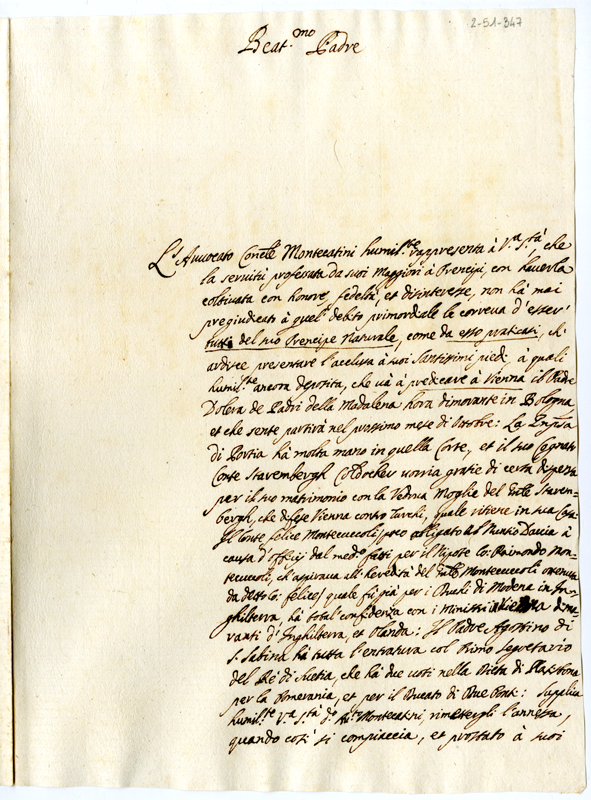 2-51-347
Beat.mo Padre
L'Avvocato Conte Montecatini humil.te rappresenta à V.ra S.tà, che
la servitù professata da suoi Maggiori à Prencipi, con haverla
coltivata con honore, fedeltà, et disinteresse, non hà mai
pregiudicato à quel debito primordiale le correva d'esser
tutto del suo Prencipe Naturale, come da esso praticasi, ch'
ardisce presentare l'acclusa à suoi Santissimi piedi à quali
humil.te ancora deposita, che và à predicare à Vienna il Padre
Dolera de Padri della Madalena hora dimorante in Bologna
et che sente partirà nel prossimo mese di Ottobre: La
di Portia hà molta mano in quella Corte, et il suo Cognato
Conte Starembergh vorria gratie di certa dispensa
per il suo matrimonio con la Vedova Moglie del Staren-
bergh, che difese Vienna contro Turchi, quale ritiene in sua Casa
Il Conte felice Montecuccoli, preso obligato al Nuntio Davia à
causa d'officij dal med.o fatti per il Nipote Co: Raimondo Mon-
tecuccoli, ch'aspirava all'heredità del Montecuccoli ottenuta
da detto Co: felice, quale fù già per i Duchi di Modena in In-
ghilterra, hà total confidenza con i Ministri in Vienna dima-
vanti d'Inghilterra, et Olanda: Il Padre Agostino di
S. Sabina hà tutta l'entratura col Primo Segretario
del Rè di Suetia, che hà due voti nella Dieta di
per la Pomerania, et per il Ducato di Due Ponti: supplica
humil.te V.ra S.tà d.o Montecatini rimettergli l'annessa,
quando così si compiaccia, et prostato à suoi